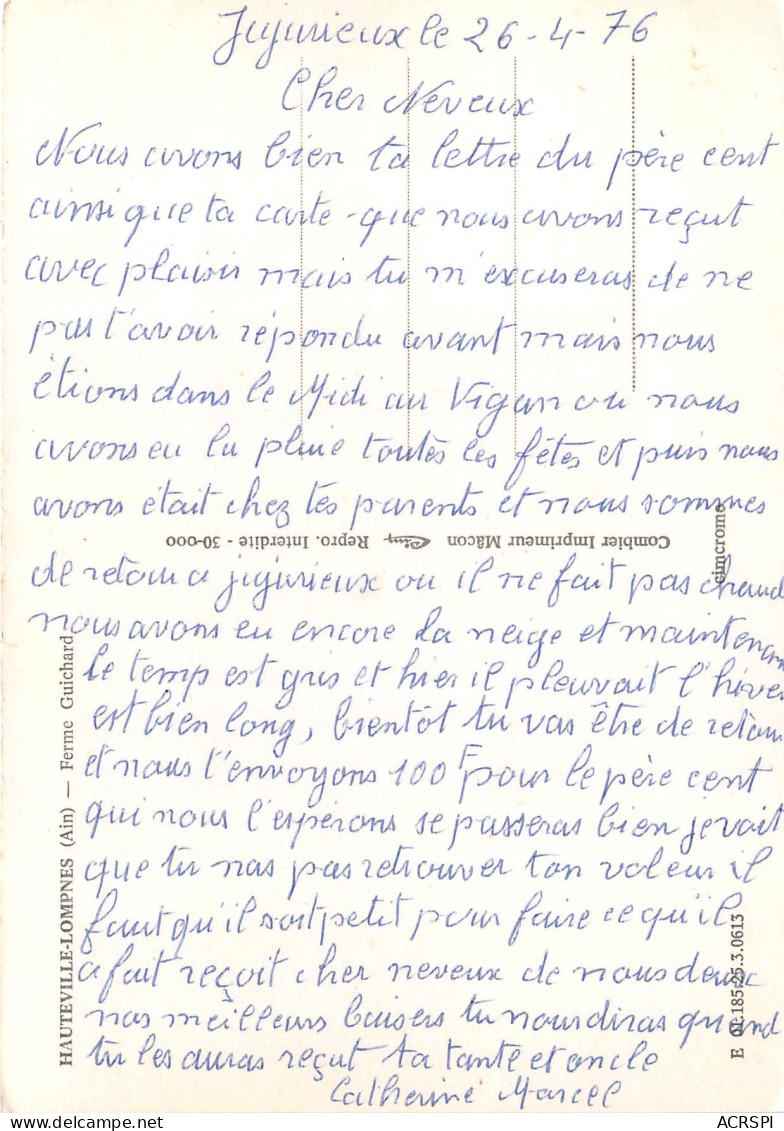 Jujurieux le 26-4-76
Cher Neveux
Nous avons bien ta lettre du père cent
ainsi que ta carte que nous avons reçut
avec plaisir mais tu m'excuseras de ne
pas t'avoir répondu avant mais nous
étions dans le Midi au Vigan ou nous
avons eu la pluie toutes les fêtes et puis nous
avons était chez tes parents et nous sommes
Combier Imprimeur Mâcon Cim Repro. Interdite - 30-000
cimcrome
de retour a jujurieux ou il ne fait pas chaud
nous avons eu encore la neige et maintenan
le temp est gris et hier il pleuvait l'hiver
est bien long, bientôt tu vas être de retour
et nous t'envoyons 100F pour le père cent
qui nous l'espérons se passeras bien je vait
que tu nas pas retrouver ton voleur il
faut qu'il soit petit pour faire ce qu'il
a fait reçoit cher neveux de nous deux
nos meilleurs baisers tu nous diras quand
tu les auras reçut ta tante et oncle
Catherine Marcel
HAUTEVILLE-LOMPNES (Ain) — Ferme Guichard
E 01.185.25.3.0613
ACRSPI